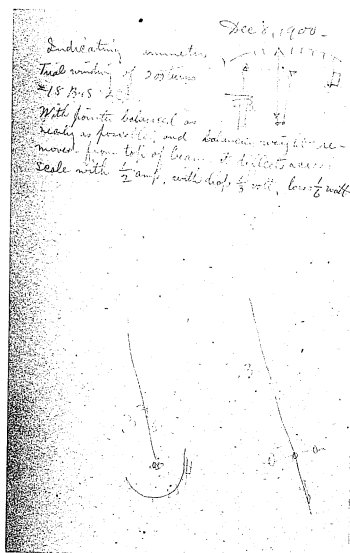 Dec 8, 1900.
Indicating ammeter
Trial winding of 20 turns
#18 B & S
With pointer balanced as
nearly as possible, and balancing weight re-
moved from top of beam, it deflects across
scale with 1/2 amp, with drop 1/3 volt, loss 1/6 watt